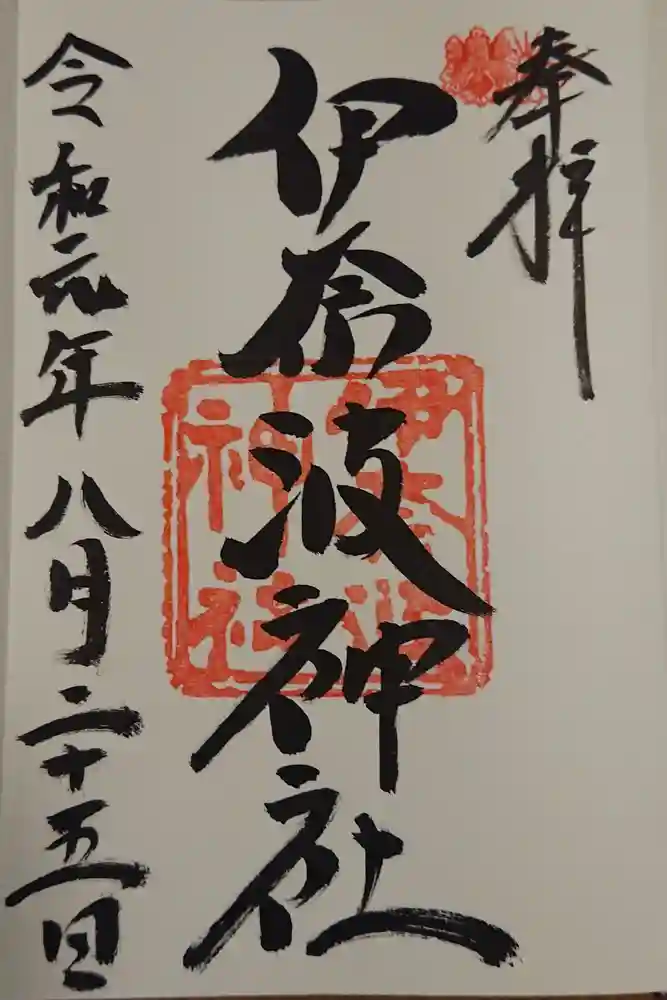 奉拝
伊奈波神社
伊奈波
神社
令和元年八月二十五日